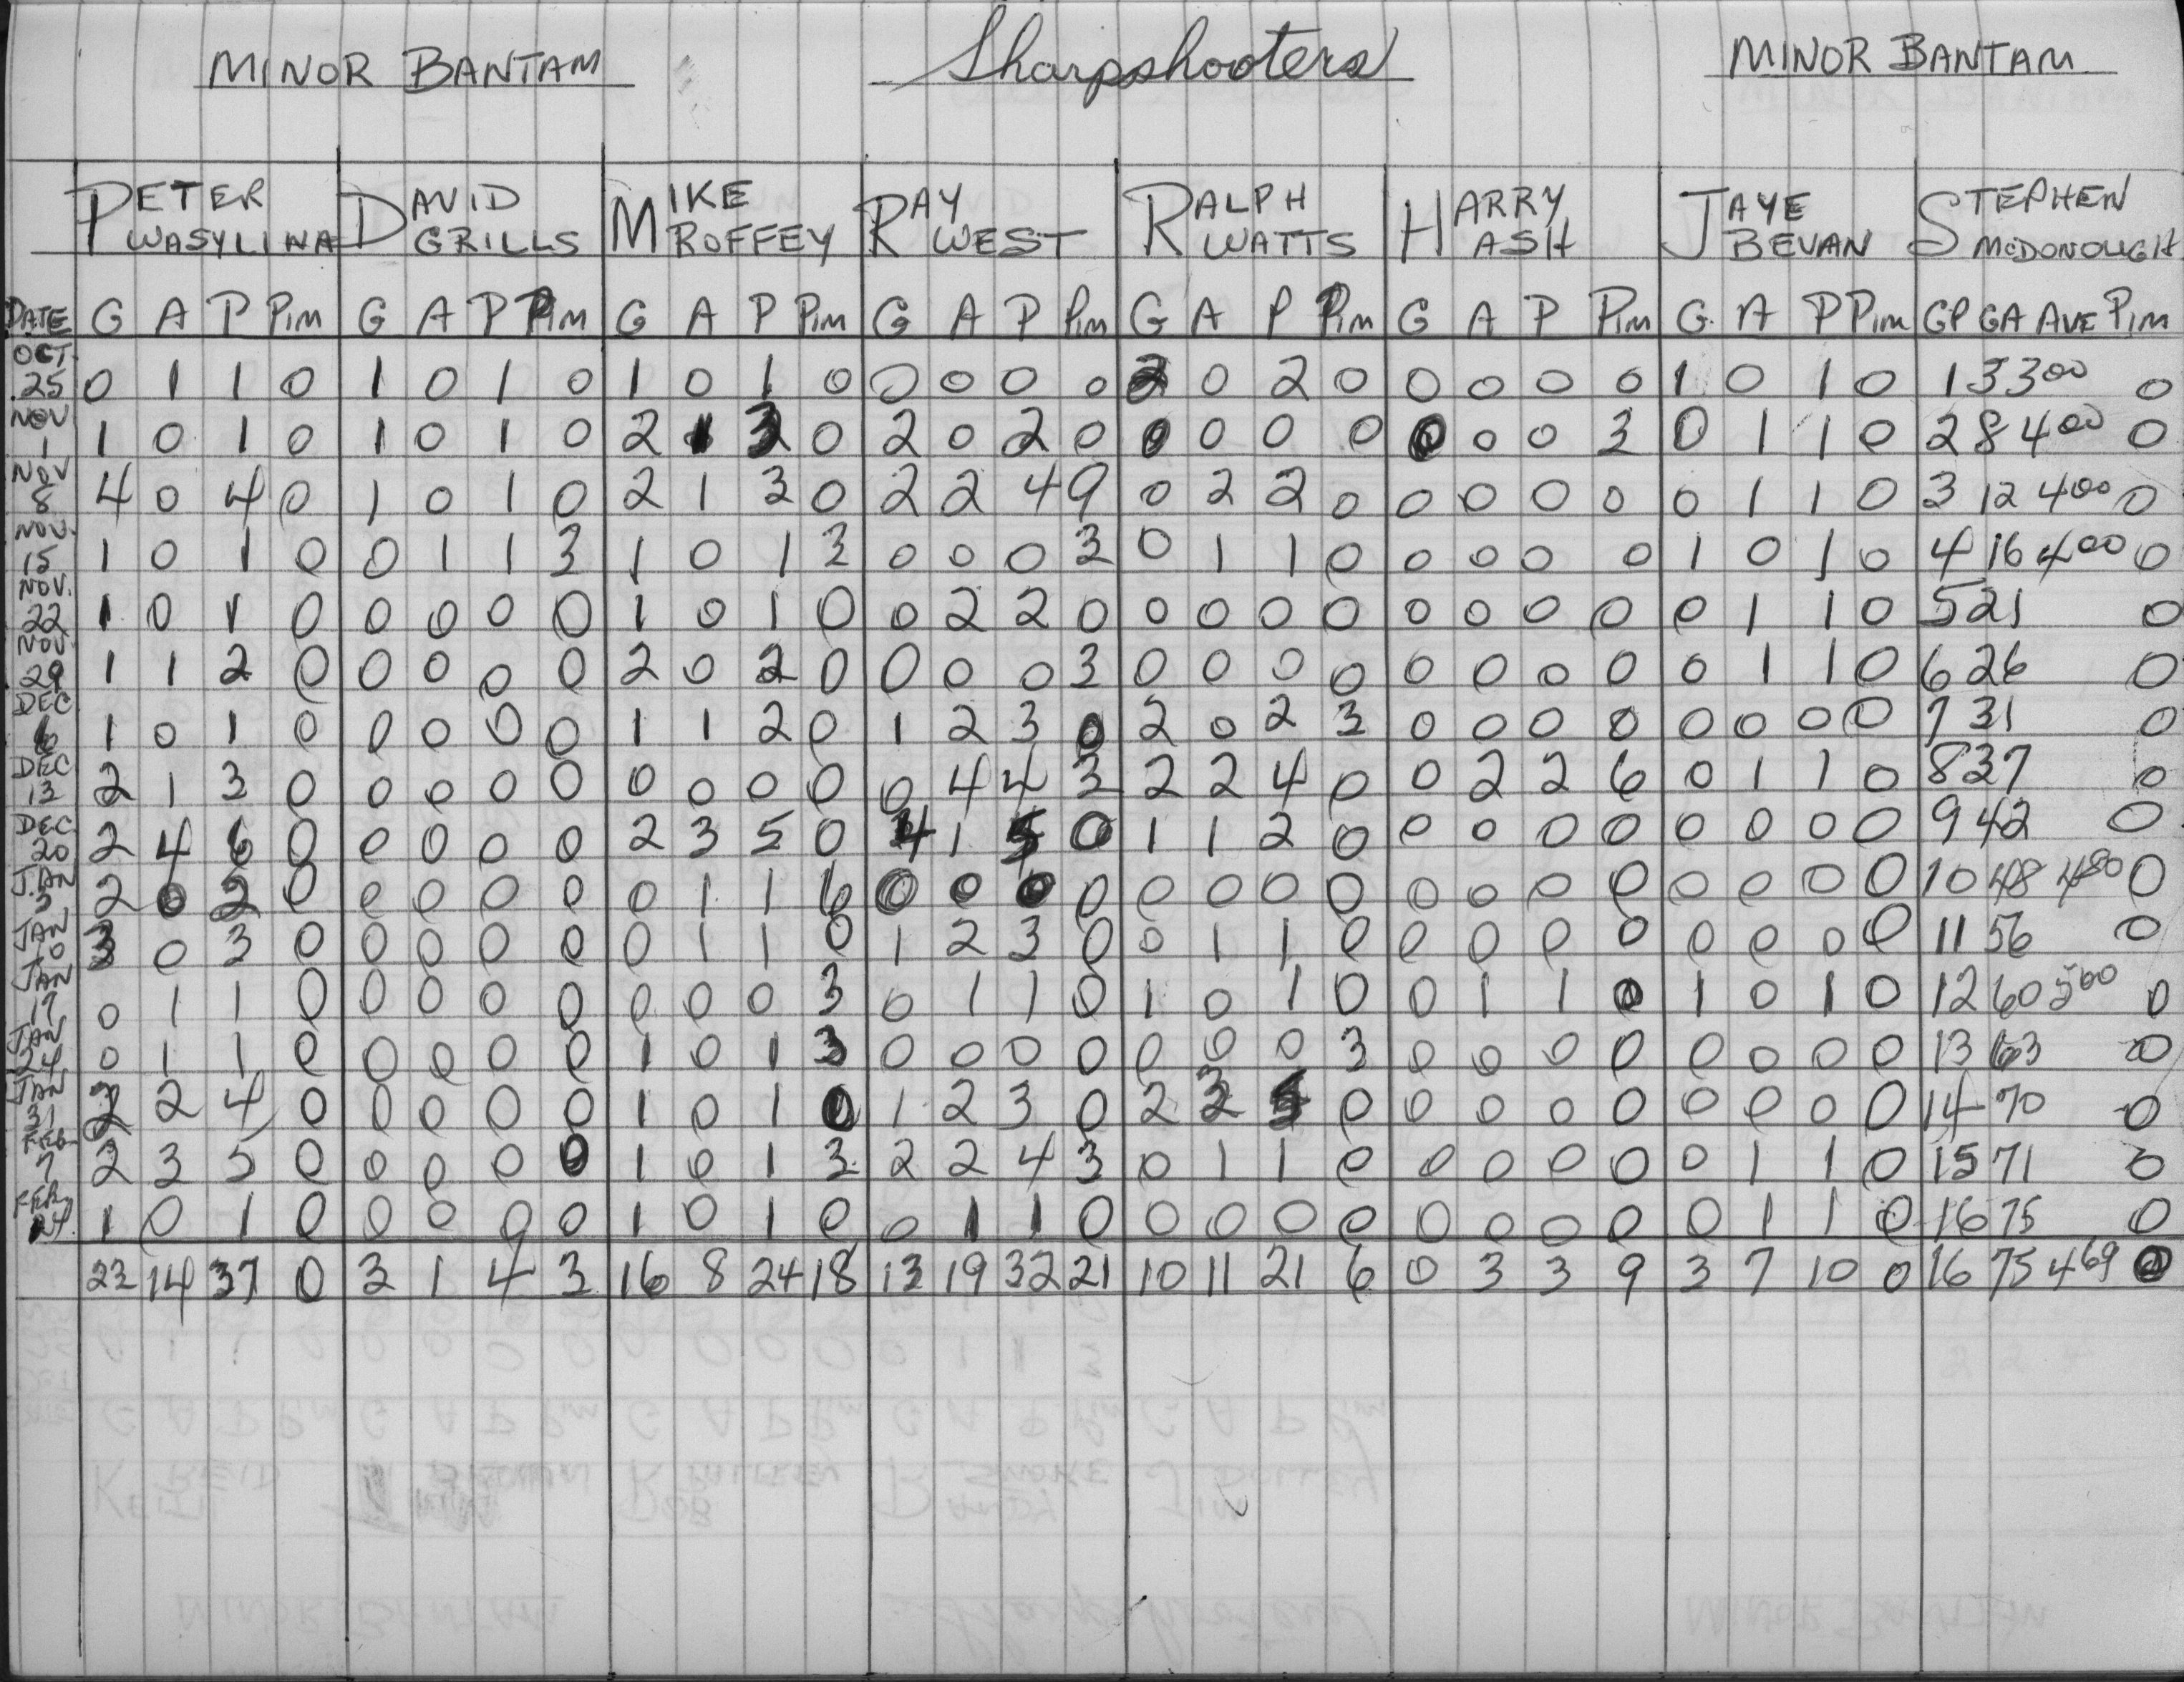 MINOR BANTAM Sharpshooters MINOR BANTAM
PETER WASYLINA DAVID GRILLS MIKE ROFFEY RAY WEST RALPH WATTS HARRY ASH JAYE BEVAN STEPHEN McDONOUGH
DATE G A P Pim G A P Pim G A P Pim G A P Pim G A P Pim G A P Pim G A P Pim GP GA AVE Pim
OCT. 25 0 1 1 0 1 0 1 0 1 0 1 0 0 0 0 0 2 0 2 0 0 0 0 0 1 0 1 0 1 3 3.00 0
NOV 1 1 0 1 0 1 0 1 0 2 1 3 0 2 0 2 0 0 0 0 0 0 0 0 3 0 1 1 0 2 8 4.00 0
NOV 8 4 0 4 0 1 0 1 0 2 1 3 0 2 2 4 9 0 2 2 0 0 0 0 0 0 1 1 0 3 12 4.00 0
NOV. 15 1 0 1 0 0 1 1 3 1 0 1 3 0 0 0 3 0 1 1 0 0 0 0 0 1 0 1 0 4 16 4.00 0
NOV. 22 1 0 1 0 0 0 0 0 1 0 1 0 0 2 2 0 0 0 0 0 0 0 0 0 0 1 1 0 5 21 0
NOV. 29 1 1 2 0 0 0 0 0 2 0 2 0 0 0 0 3 0 0 0 0 0 0 0 0 0 1 1 0 6 26 0
DEC 6 1 0 1 0 0 0 0 0 1 1 2 0 1 2 3 0 2 0 2 3 0 0 0 0 0 0 0 0 7 31 0
DEC 13 2 1 3 0 0 0 0 0 0 0 0 0 0 4 4 3 2 2 4 0 0 2 2 6 0 1 1 0 8 37 0
DEC. 20 2 4 6 0 0 0 0 0 2 3 5 0 4 1 5 0 1 1 2 0 0 0 0 0 0 0 0 0 9 42 0
JAN 3 2 0 2 0 0 0 0 0 0 1 1 6 0 0 0 0 0 0 0 0 0 0 0 0 0 0 0 0 10 48 4.80 0
JAN 10 3 0 3 0 0 0 0 0 0 1 1 0 1 2 3 0 0 1 1 0 0 0 0 0 0 0 0 0 11 56 0
JAN 17 0 1 1 0 0 0 0 0 0 0 0 3 0 1 1 0 1 0 1 0 0 1 1 0 1 0 1 0 12 60 5.00 0
JAN 24 0 1 1 0 0 0 0 0 1 0 1 3 0 0 0 0 0 0 0 3 0 0 0 0 0 0 0 0 13 63 0
JAN 31 2 2 4 0 0 0 0 0 1 0 1 0 1 2 3 0 2 3 5 0 0 0 0 0 0 0 0 0 14 70 0
FEB 7 2 3 5 0 0 0 0 0 1 0 1 3 2 2 4 3 0 1 1 0 0 0 0 0 0 1 1 0 15 71 0
FEB 14 1 0 1 0 0 0 0 0 1 0 1 0 0 1 1 0 0 0 0 0 0 0 0 0 0 1 1 0 16 75 0
23 14 37 0 3 1 4 3 16 8 24 18 13 19 32 21 10 11 21 6 0 3 3 9 3 7 10 0 16 75 4.69 0